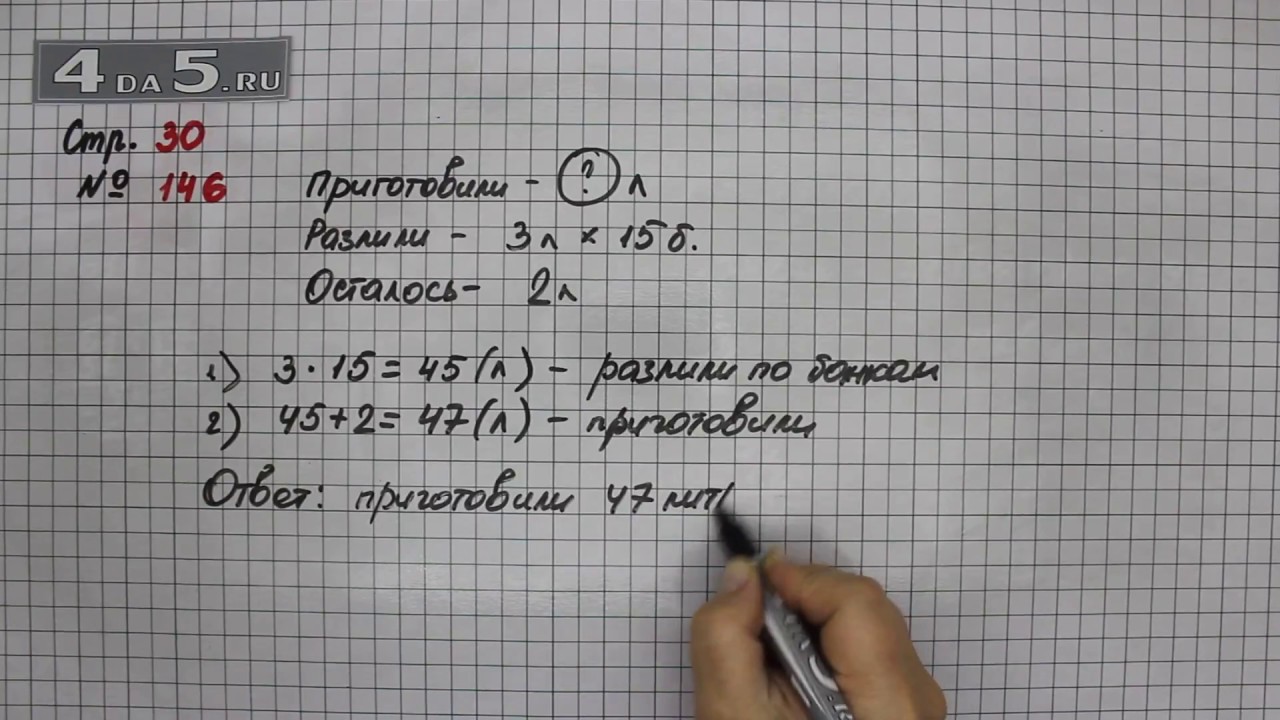 4DA5.RU
Стр. 30
№ 146
Приготовили - ? л
Разлили - 3л × 15 б.
Осталось - 2л
1) 3 · 15 = 45 (л) - разлили по банкам
2) 45 + 2 = 47 (л) - приготовили
Ответ: приготовили 47 лит